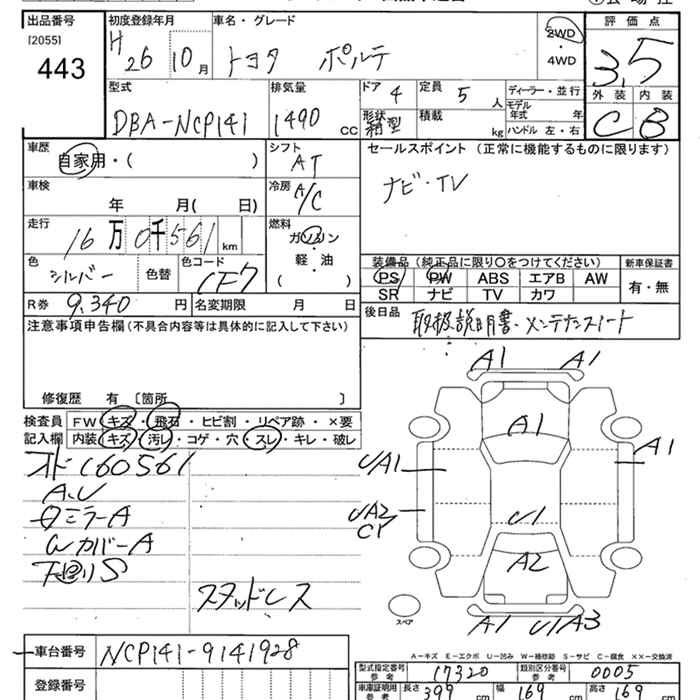 出品番号 初度登録年月 車名・グレード 2WD 評価点
[2055] H26 10月 トヨタ ポルテ ・
443 4WD 3.5
型式 排気量 ドア 4 定員 5人 ディーラー・並行 外装 内装
DBA-NCP141 1490cc 形状 箱型 積載 kg モデル年式 年 C B
ハンドル 左・右
車歴 シフト セールスポイント(正常に機能するものに限ります)
自家用・( ) AT ナビ・TV
車検 冷房
年 月( 日) A/C
走行 燃料
16万0千561km ガソリン
軽・油
( )
色 色替 色コード 装備品(純正品に限り○をつけてください) 新車保証書
シルバー 1F7 PS PW ABS エアB AW 有・無
SR ナビ TV カワ
R券 9,340円 名変期限 月 日 後日品
注意事項申告欄(不具合内容等は具体的に記入して下さい) 取扱説明書・メンテナンスノート
修復歴 有〔箇所 〕
検査員 FW キズ・飛石・ヒビ割・リペア跡・×要
記入欄 内装 キズ・汚レ・コゲ・穴・スレ・キレ・破レ
A1 A1
A1 A1
UA1
UA2
C1
U1
A2
スペア
A1 U1A3
160561
A.U
ミラーA
WカバーA
下回りS
スタッドレス
A-キズ E-エクボ U-凹み W-補修跡 S-サビ C-腐食 ××-交換済
車台番号 NCP141-9141928
型式指定番号 参考 17320 類別区分番号 参考 0005
登録番号
車庫証明用 参考 長さ 399cm 幅 169cm 高さ 169cm